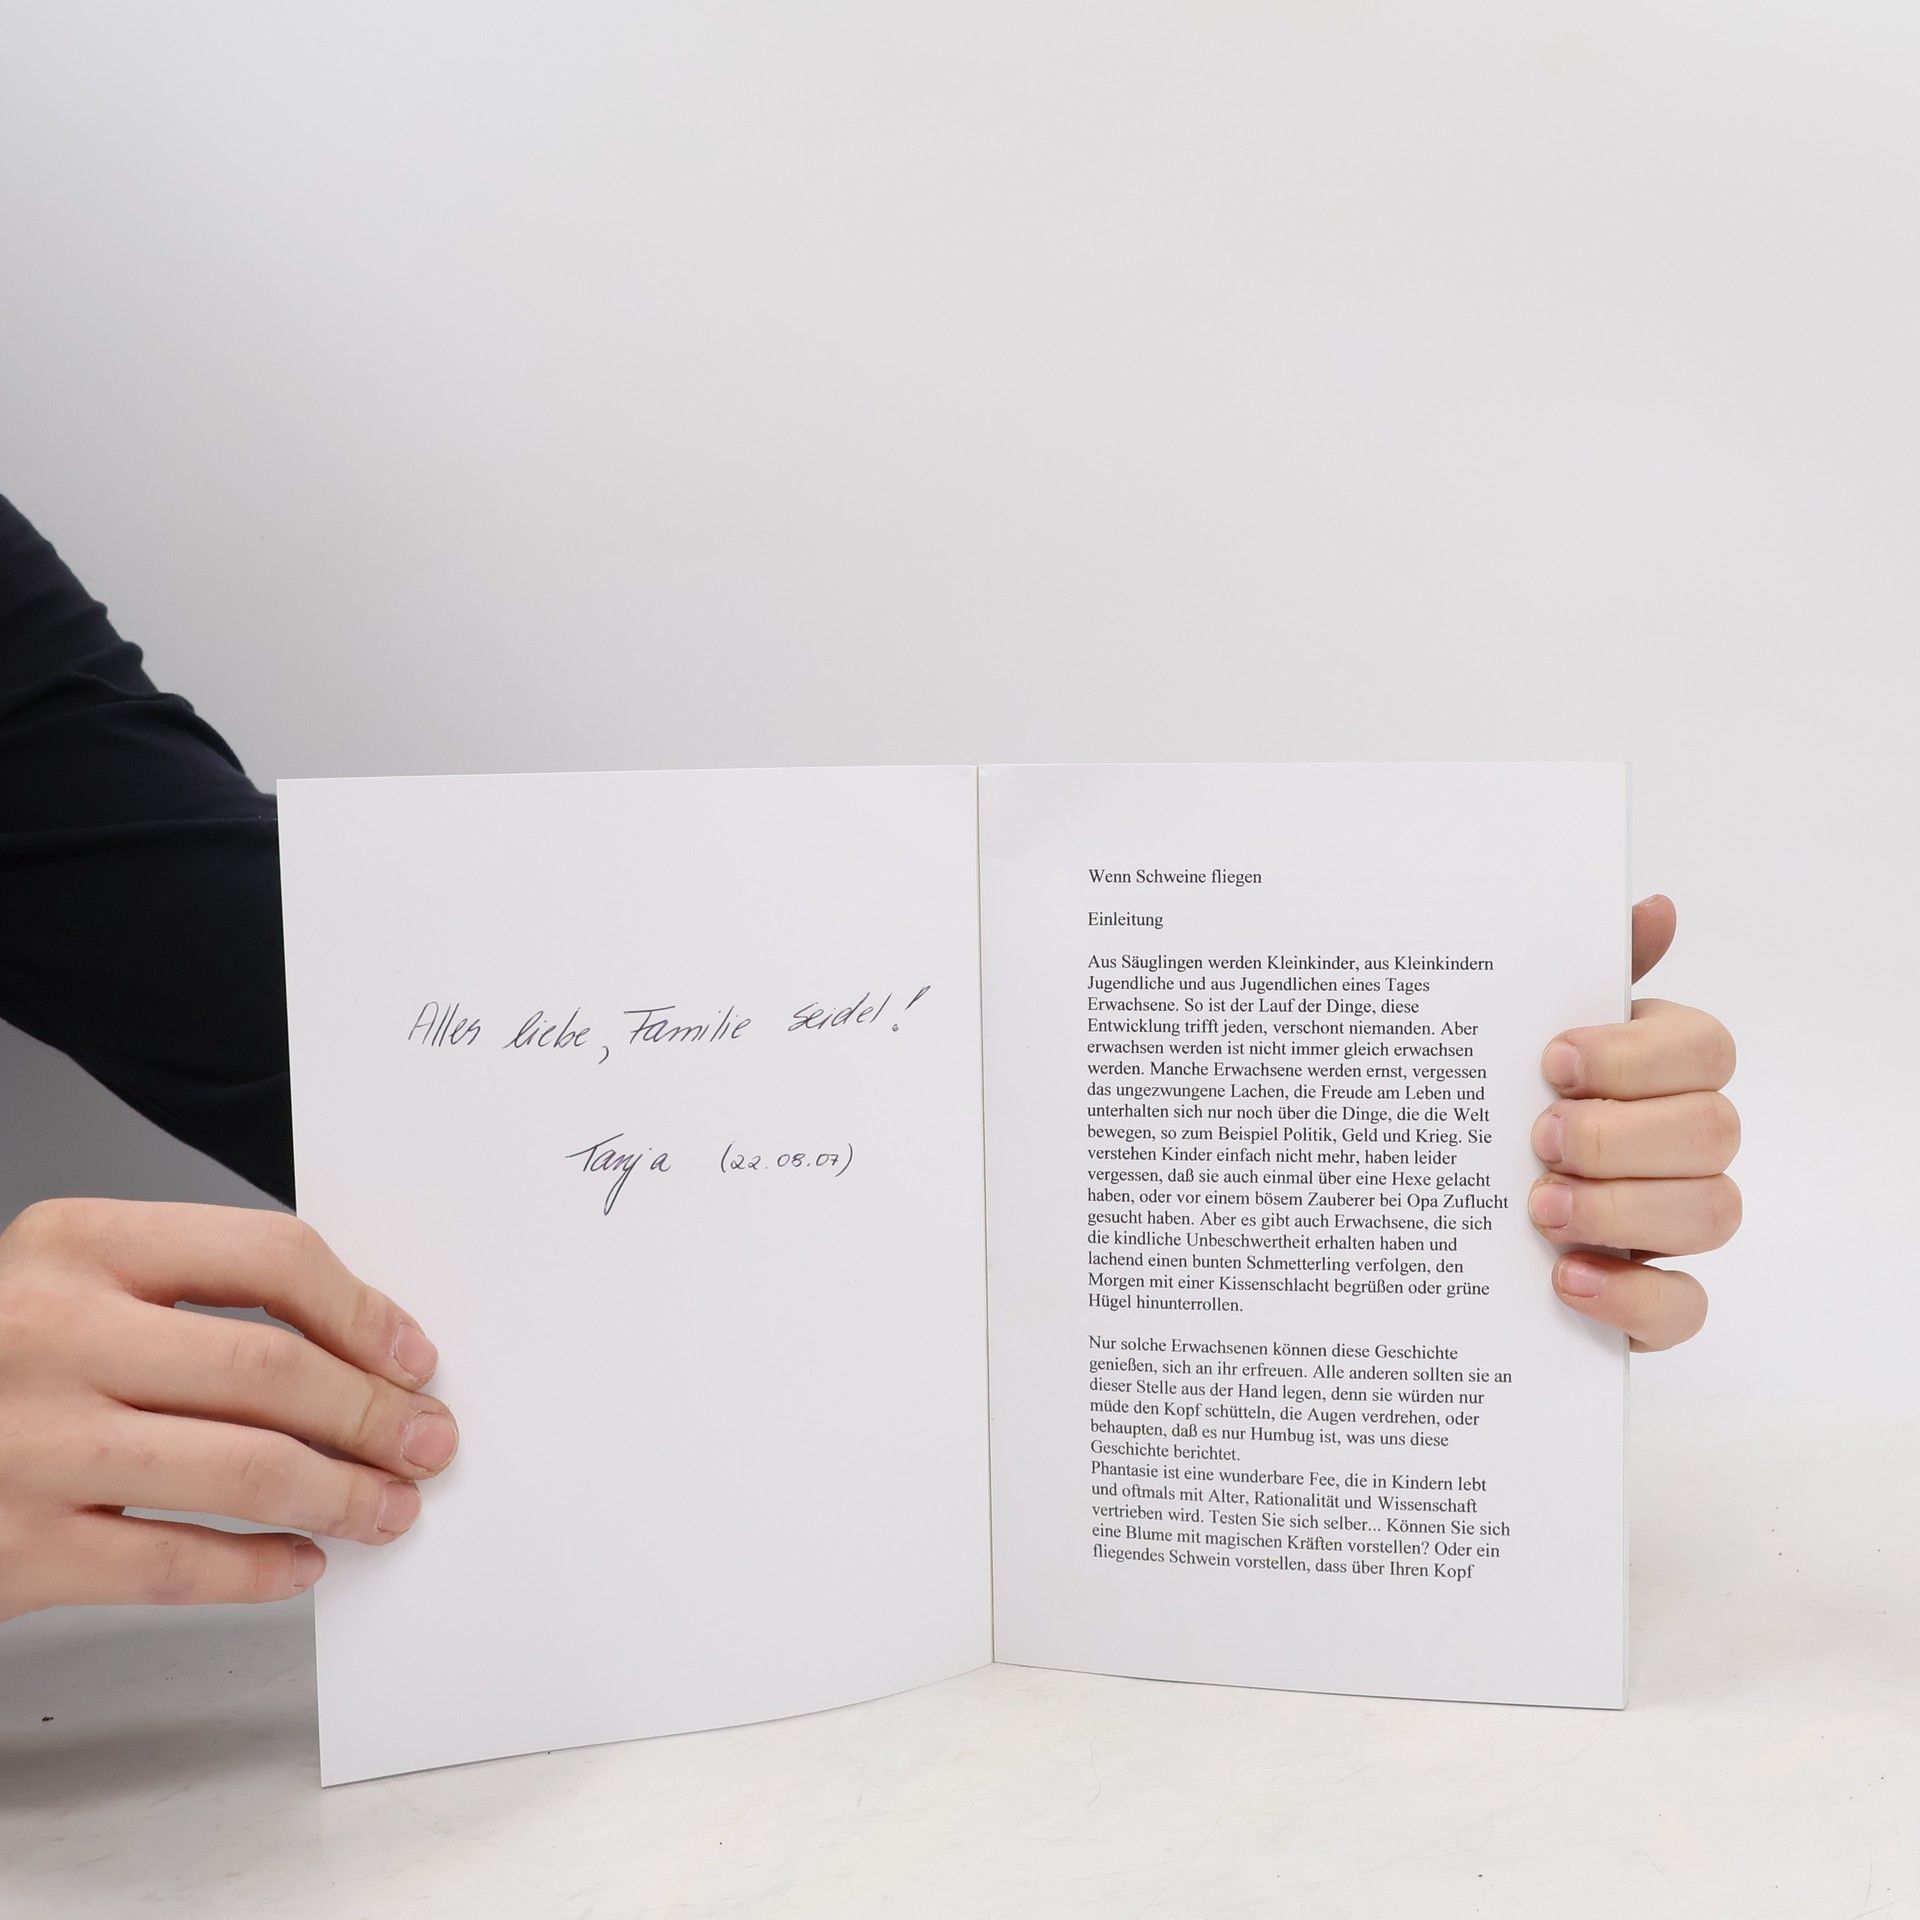 Alles liebe, Familie Seidel!
Tanja (22.08.07)
Wenn Schweine fliegen
Einleitung
Aus Säuglingen werden Kleinkinder, aus Kleinkindern
Jugendliche und aus Jugendlichen eines Tages
Erwachsene. So ist der Lauf der Dinge, diese
Entwicklung trifft jeden, verschont niemanden. Aber
erwachsen werden ist nicht immer gleich erwachsen
werden. Manche Erwachsene werden ernst, vergessen
das ungezwungene Lachen, die Freude am Leben und
unterhalten sich nur noch über die Dinge, die die Welt
bewegen, so zum Beispiel Politik, Geld und Krieg. Sie
verstehen Kinder einfach nicht mehr, haben leider
vergessen, daß sie auch einmal über eine Hexe gelacht
haben, oder vor einem bösem Zauberer bei Opa Zuflucht
gesucht haben. Aber es gibt auch Erwachsene, die sich
die kindliche Unbeschwertheit erhalten haben und
lachend einen bunten Schmetterling verfolgen, den
Morgen mit einer Kissenschlacht begrüßen oder grüne
Hügel hinunterrollen.
Nur solche Erwachsenen können diese Geschichte
genießen, sich an ihr erfreuen. Alle anderen sollten sie an
dieser Stelle aus der Hand legen, denn sie würden nur
müde den Kopf schütteln, die Augen verdrehen, oder
behaupten, daß es nur Humbug ist, was uns diese
Geschichte berichtet.
Phantasie ist eine wunderbare Fee, die in Kindern lebt
und oftmals mit Alter, Rationalität und Wissenschaft
vertrieben wird. Testen Sie sich selber... Können Sie sich
eine Blume mit magischen Kräften vorstellen? Oder ein
fliegendes Schwein vorstellen, dass über Ihren Kopf